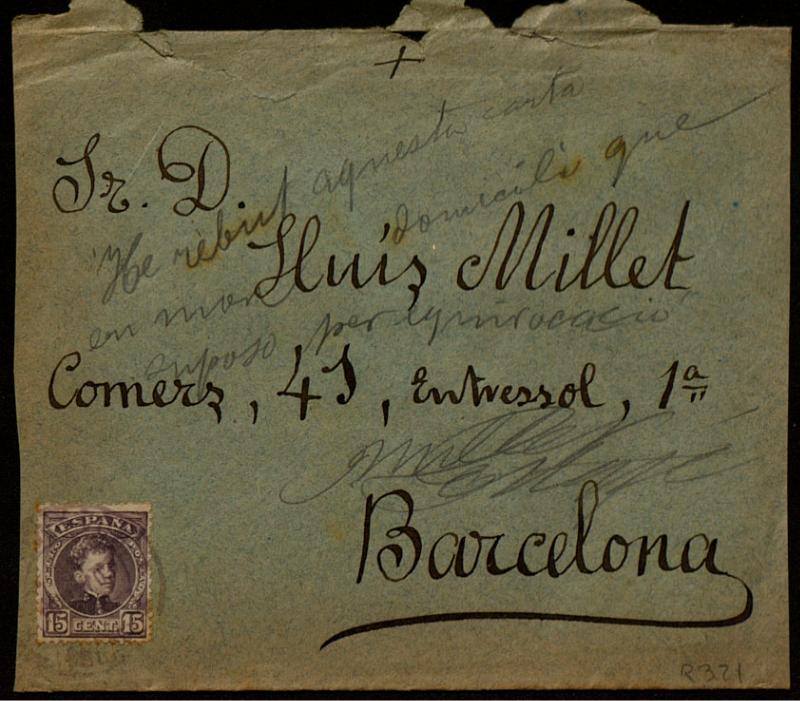 +
Sr. D.
Lluís Millet
Comerç, , Entressol, 1ª
Barcelona
He rebut aquesta carta
en mon domicili que
suposo per equivocació
Millet
ESPAÑA
15 CENT. 15
R321